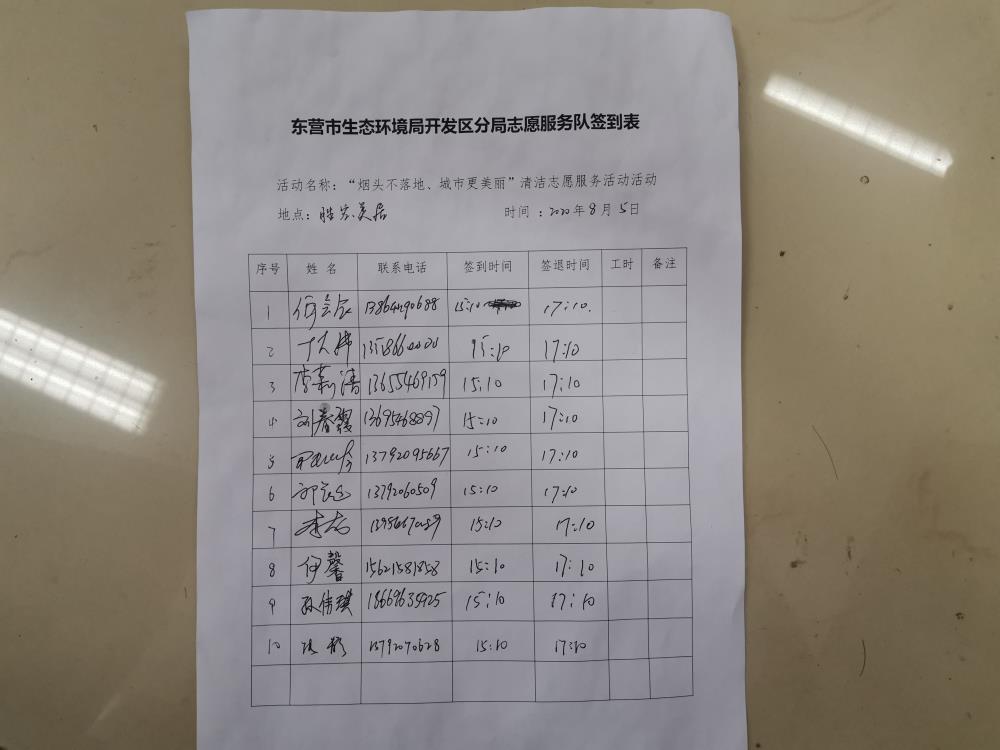 东营市生态环境局开发区分局志愿服务队签到表
活动名称：“烟头不落地、城市更美丽”清洁志愿服务活动活动
地点：胜宏美居 时间：2020年8月5日
序号 姓名 联系电话 签到时间 签退时间 工时 备注
1 15:10 17:10.
2 15:10 17:10
3 李莉清 13655469159 15:10 17:10
4 刘春霞 13695468897 15:10 17:10
5 13792095667 15:10 17:10
6 13792060509 15:10 17:10
7 15:10 17:10
8 伊馨 15621581858 15:10 17:10
9 孙倩琪 18669635925 15:10 17:10
10 13792070628 15:10 17:10